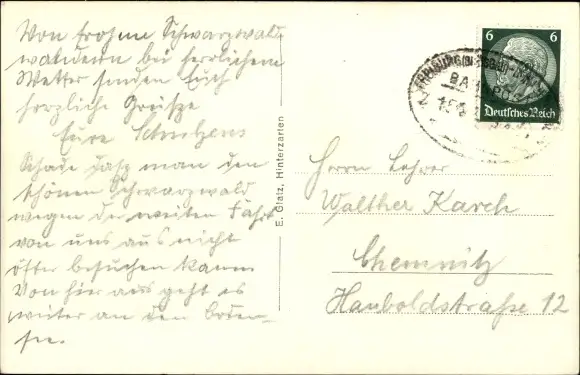 Von frohem Schwarzwald
wandern bei herrlichem
Wetter senden Euch
herzliche Grüße
Eure Schulzens
Schade dass man den
schönen Schwarzwald
wegen der weiten Fahrt
von uns aus nicht
öfter besuchen kann
Von hier aus geht es
weiter an den Boden-
see.
E. Glatz, Hinterzarten
6 6
Deutsches Reich
Herrn Lehrer
Walther Karch
Chemnitz
Hauboldstraße 12